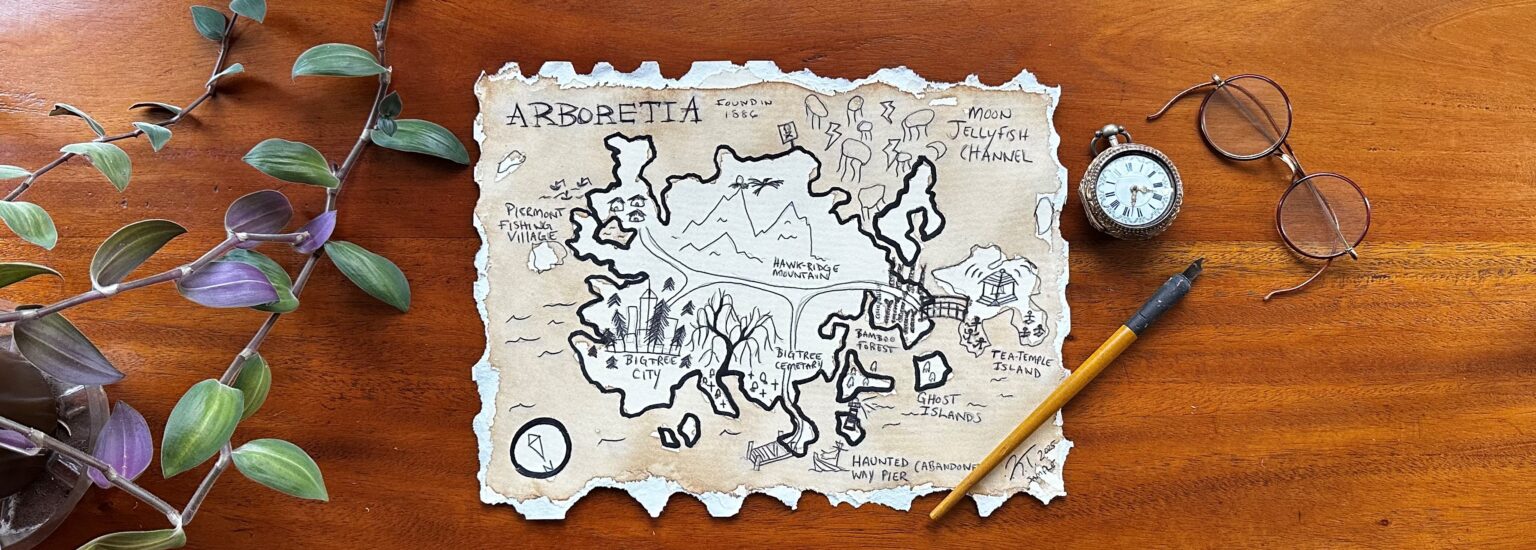 ARBORETIA
FOUND IN
1886
MOON
JELLYFISH
CHANNEL
PIERMONT
FISHING
VILLAGE
HAWK-RIDGE
MOUNTAIN
BAMBOO
FOREST
TEA-TEMPLE
ISLAND
BIGTREE
CITY
BIGTREE
CEMETARY
GHOST
ISLANDS
HAUNTED (ABANDONE
WAY PIER
K.T. 2005